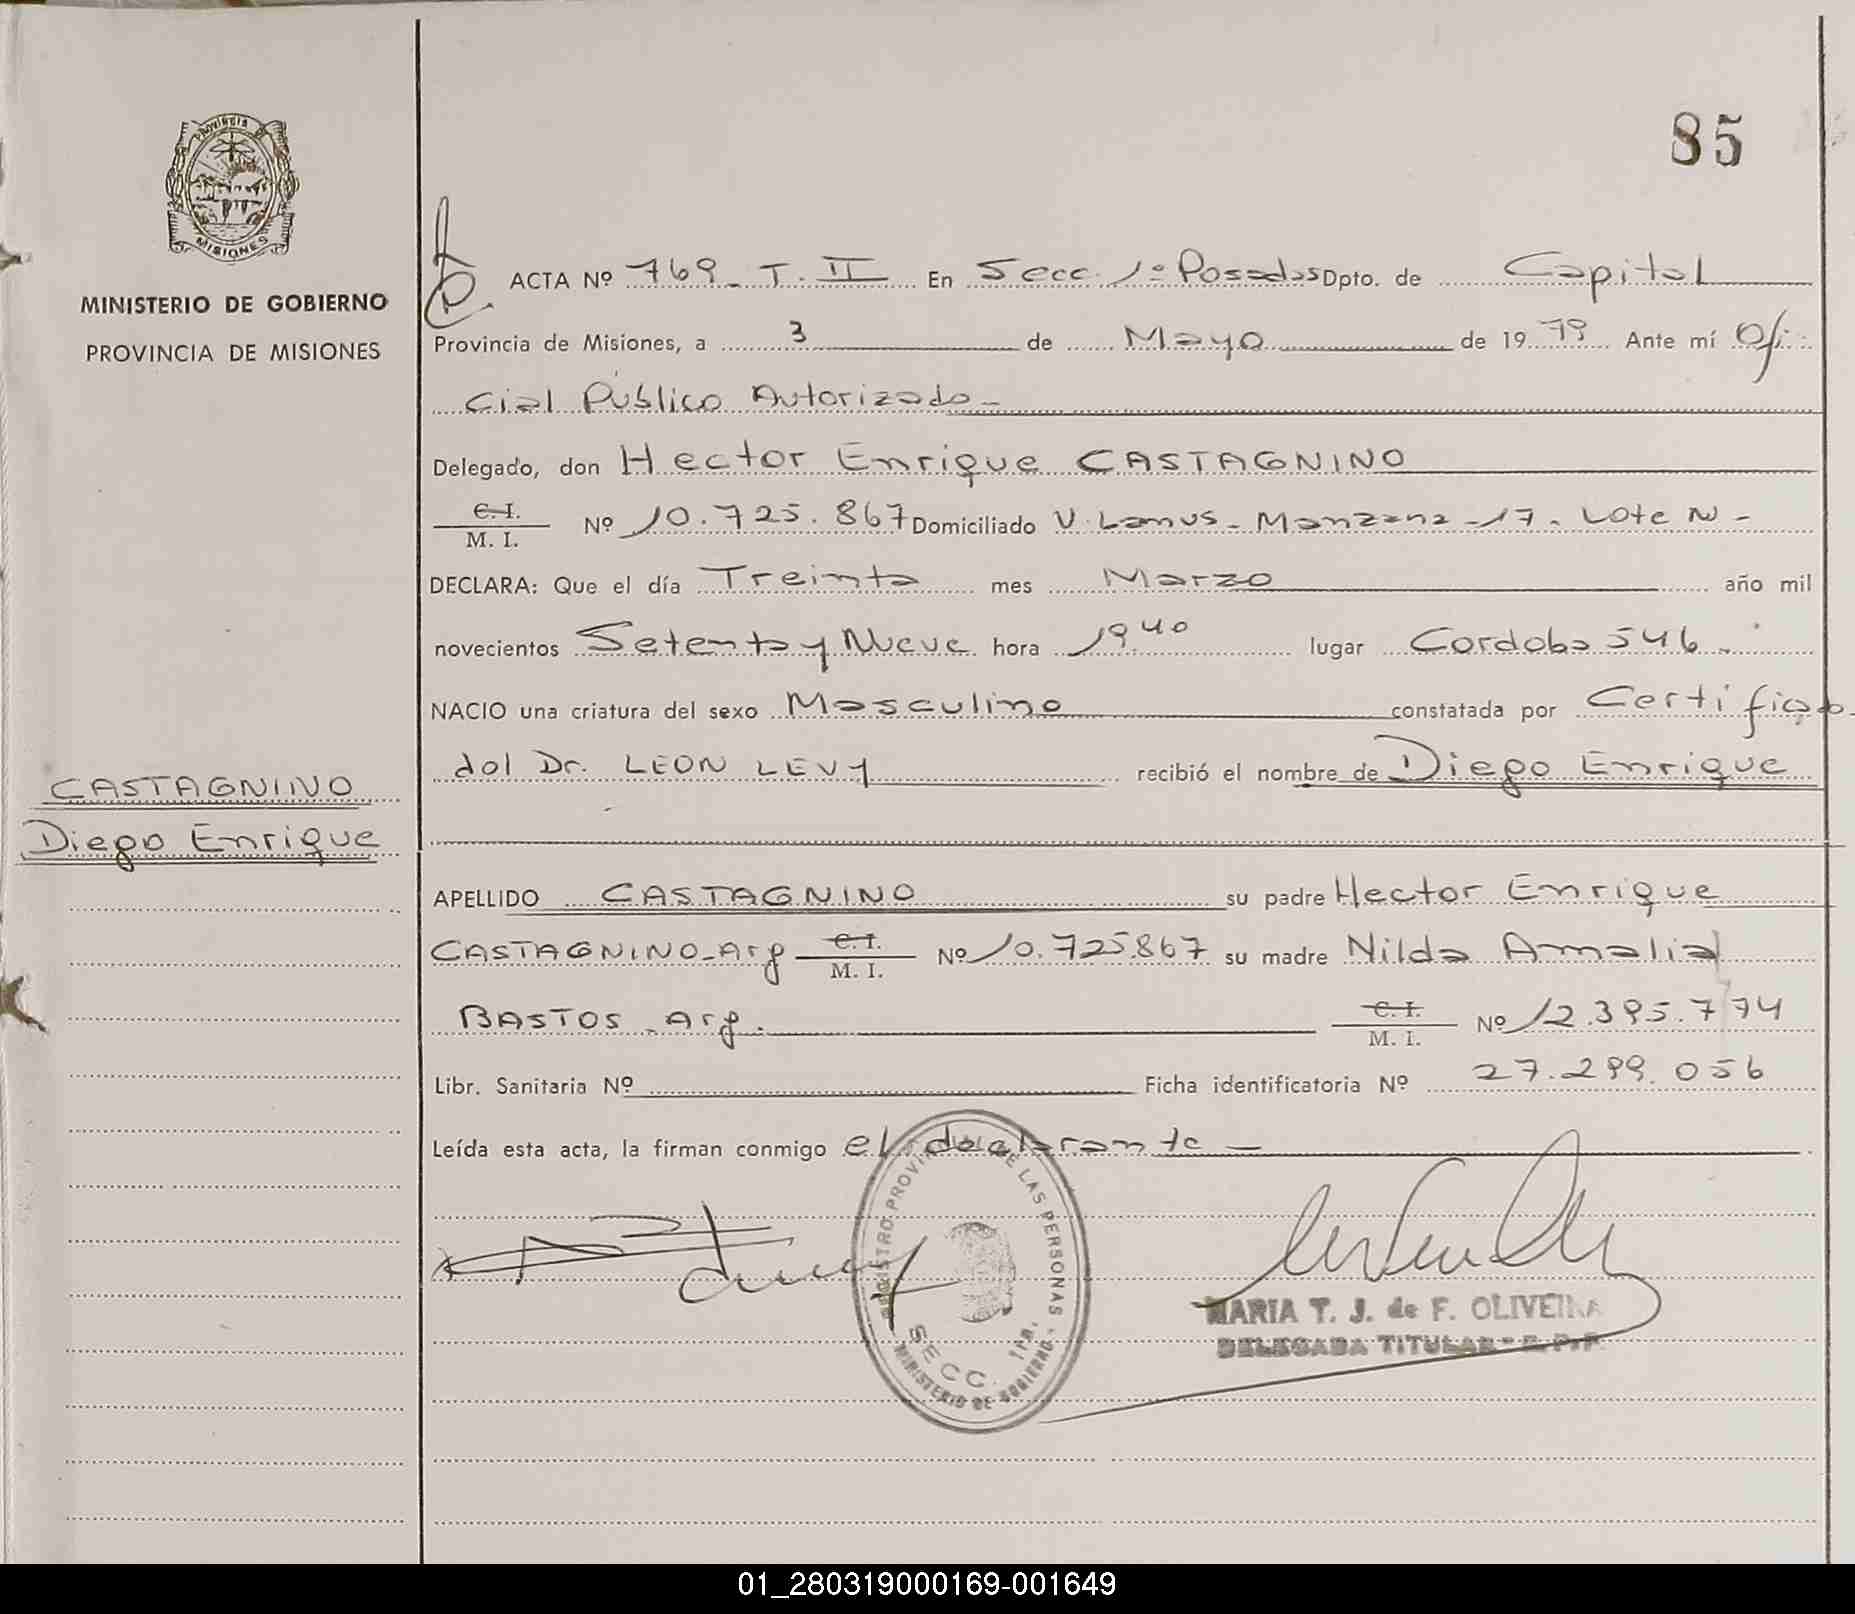 85
PROVINCIA DE
MISIONES
MINISTERIO DE GOBIERNO
PROVINCIA DE MISIONES
ACTA Nº 769 - T. II En Secc. 1º Posadas Dpto. de Capital
Provincia de Misiones, a 3 de Mayo de 1979 Ante mí Ofi-
cial Público Autorizado -
Delegado, don Hector Enrique CASTAGNINO
C. I. / M. I. Nº 10.725.867 Domiciliado V. Lanus - Manzana - 17 - Lote N -
DECLARA: Que el día Treinta mes Marzo año mil
novecientos Setenta y Nueve hora 19,40 lugar Cordoba 546 -
NACIO una criatura del sexo Masculino constatada por Certificado
del Dr. LEON LEVY recibió el nombre de Diego Enrique
CASTAGNINO
Diego Enrique
APELLIDO CASTAGNINO su padre Hector Enrique
CASTAGNINO - Arg C. I. / M. I. Nº 10.725.867 su madre Nilda Amalia
BASTOS - Arg. C. I. / M. I. Nº 12.395.774
Libr. Sanitaria Nº Ficha identificatoria Nº 27.299.056
Leída esta acta, la firman conmigo el declarante -
REGISTRO PROVINCIAL DE LAS PERSONAS
SECC. 1RA.
MINISTERIO DE GOBIERNO
MARIA T. J. de F. OLIVEIRA
DELEGADA TITULAR - R. P. P.
01_280319000169-001649